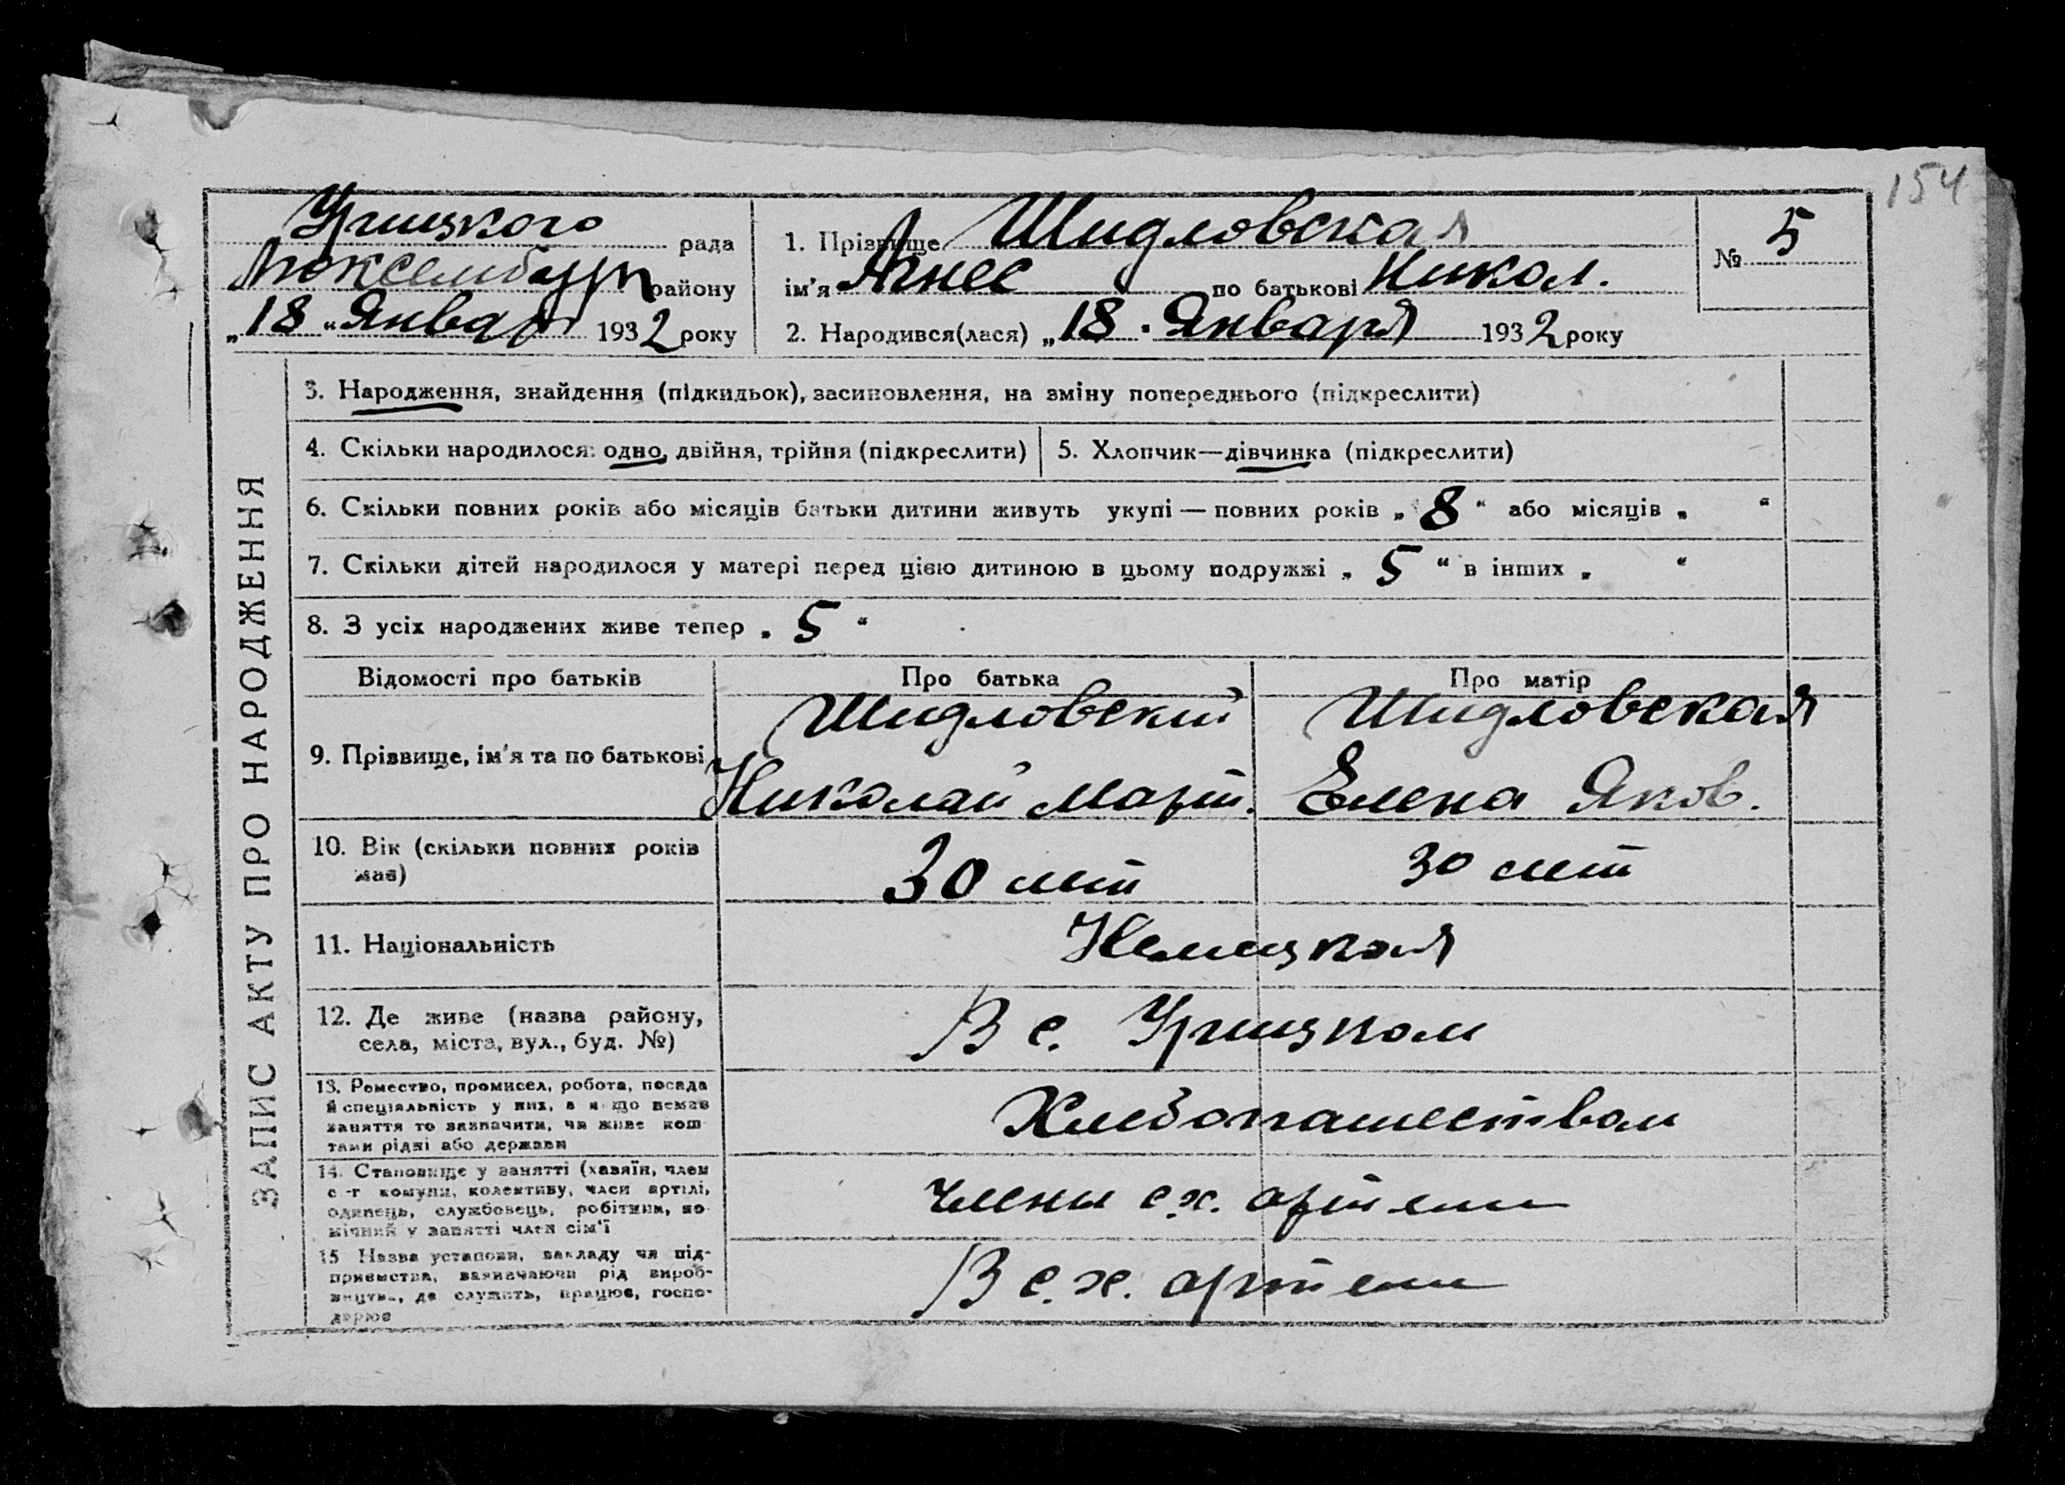 154
Урицкого рада
Люксембург району
„18“ Январ 1932 року
1. Прізвище Шидловская
ім'я Агнес по батькові Никол.
2. Народився(лася) „18 · Января 1932 року
№ 5
ЗАПИС АКТУ ПРО НАРОДЖЕННЯ
3. Народження, знайдення (підкидьок), засиновлення, на зміну попереднього (підкреслити)
4. Скільки народилося: одно, двійня, трійня (підкреслити)
5. Хлопчик—дівчинка (підкреслити)
6. Скільки повних років або місяців батьки дитини живуть укупі — повних років „ 8 “ або місяців „ “
7. Скільки дітей народилося у матері перед цією дитиною в цьому подружжі „ 5 “ в інших „ “
8. З усіх народжених живе тепер „ 5 “
Відомості про батьків Про батька Про матір
9. Прізвище, ім'я та по батькові
Шидловский
Николай Март.
Шидловская
Елена Яков.
10. Вік (скільки повних років
має)
30 лет
30 лет
11. Національність
Немецкая
12. Де живе (назва району,
села, міста, вул., буд. №)
В с. Урицком
13. Ремество, промисел, робота, посада
й спеціяльність у них, а якщо немає
заняття то зазначити, чи живе кош-
тами рідні або держави
Хлебопашеством
14. Становище у занятті (хазяїн, член
с-г комуни, колективу, член артілі,
одинець, службовець, робітник, по-
мічний у занятті член сім'ї
члены с.х. артели
15 Назва установи, закладу чи під-
приємства, зазначаючи рід вироб-
ництва, де служить, працює, госпо-
дарює
В с.х. артели